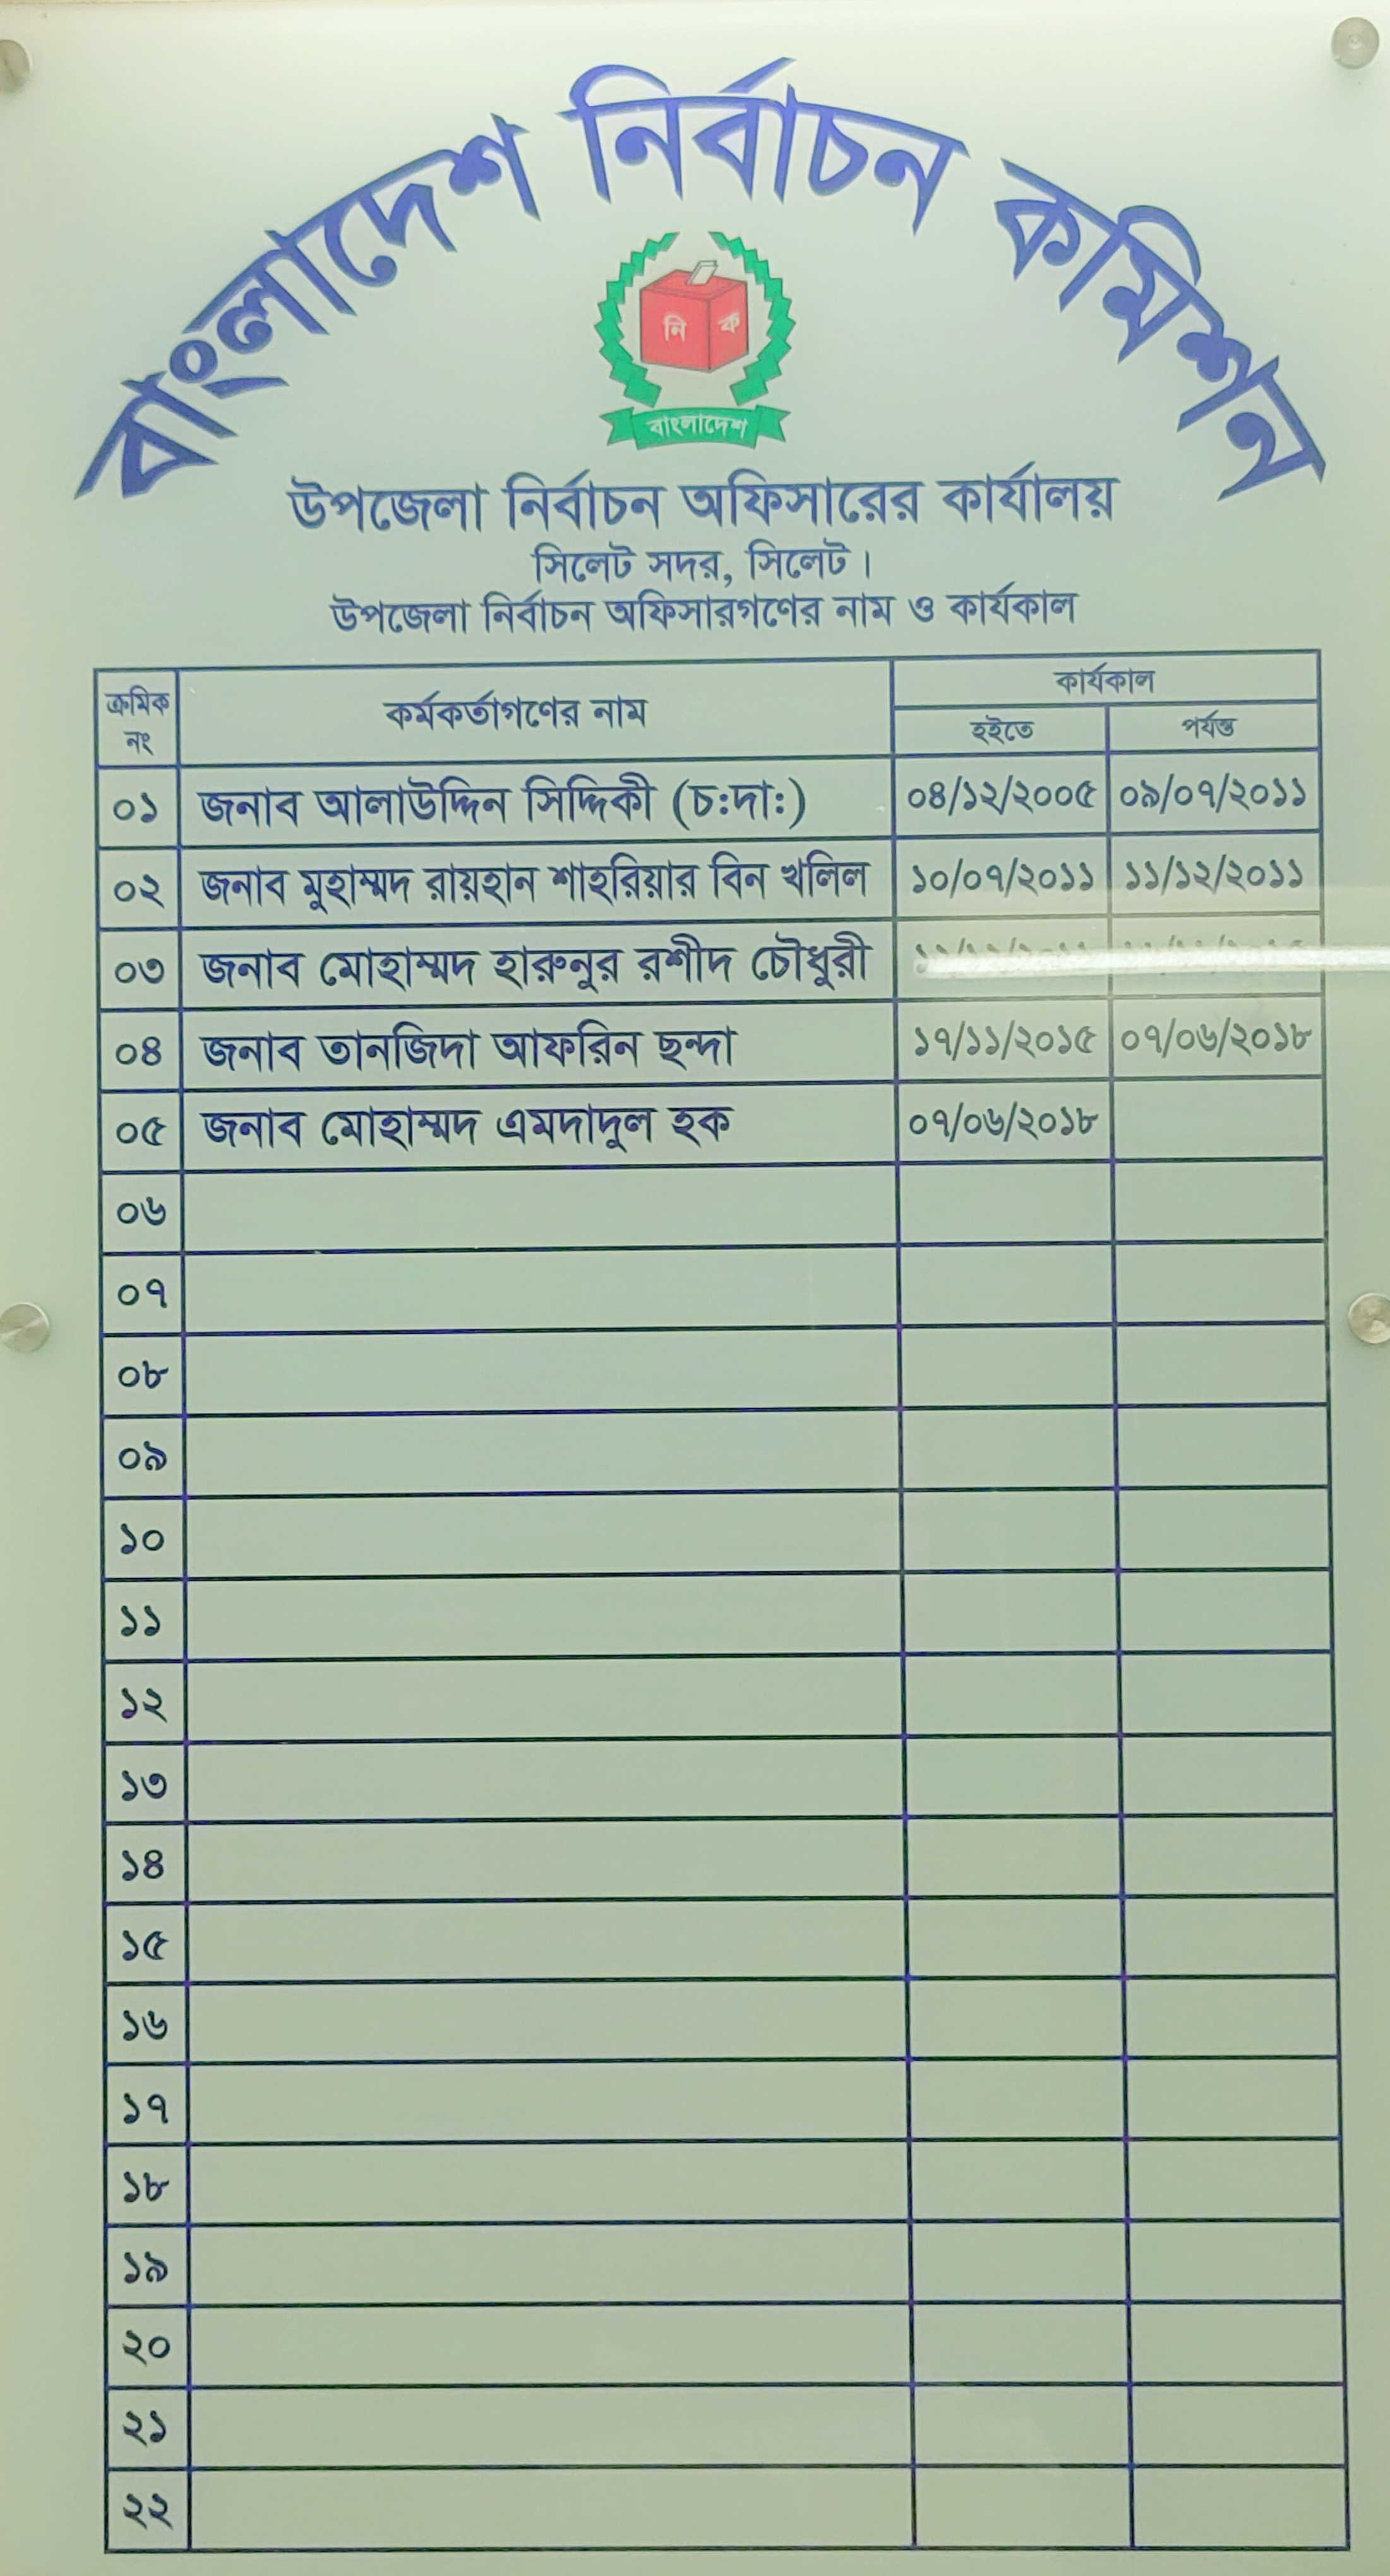 বাংলাদেশ নির্বাচন কমিশন
নি ক
বাংলাদেশ
উপজেলা নির্বাচন অফিসারের কার্যালয়
সিলেট সদর, সিলেট।
উপজেলা নির্বাচন অফিসারগণের নাম ও কার্যকাল
ক্রমিক নং কর্মকর্তাগণের নাম কার্যকাল
হইতে পর্যন্ত
০১ জনাব আলাউদ্দিন সিদ্দিকী (চ:দা:) ০৪/১২/২০০৫ ০৯/০৭/২০১১
০২ জনাব মুহাম্মদ রায়হান শাহরিয়ার বিন খলিল ১০/০৭/২০১১ ১১/১২/২০১১
০৩ জনাব মোহাম্মদ হারুনুর রশীদ চৌধুরী
০৪ জনাব তানজিদা আফরিন ছন্দা ১৭/১১/২০১৫ ০৭/০৬/২০১৮
০৫ জনাব মোহাম্মদ এমদাদুল হক ০৭/০৬/২০১৮
০৬
০৭
০৮
০৯
১০
১১
১২
১৩
১৪
১৫
১৬
১৭
১৮
১৯
২০
২১
২২